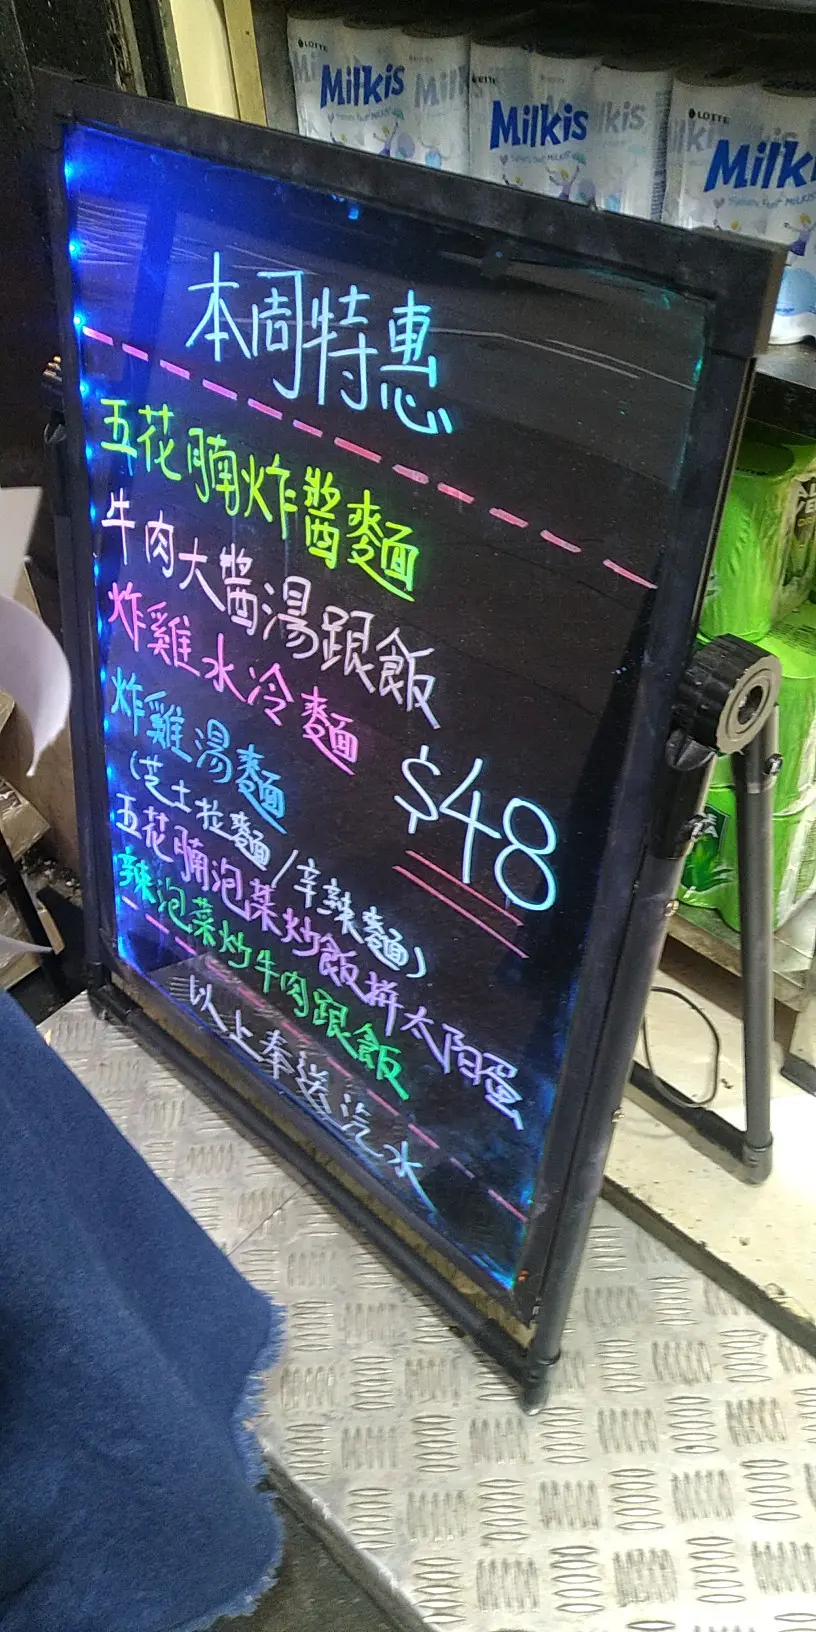 LOTTE
Milkis
Milkis
LOTTE
Milkis
本周特惠
五花腩炸醬麵
牛肉大醬湯跟飯
炸雞水冷麵
炸雞湯麵
$48
(芝士拉麵/辛辣麵)
五花腩泡菜炒飯拼太阳蛋
辣泡菜炒牛肉跟飯
以上奉送汽水